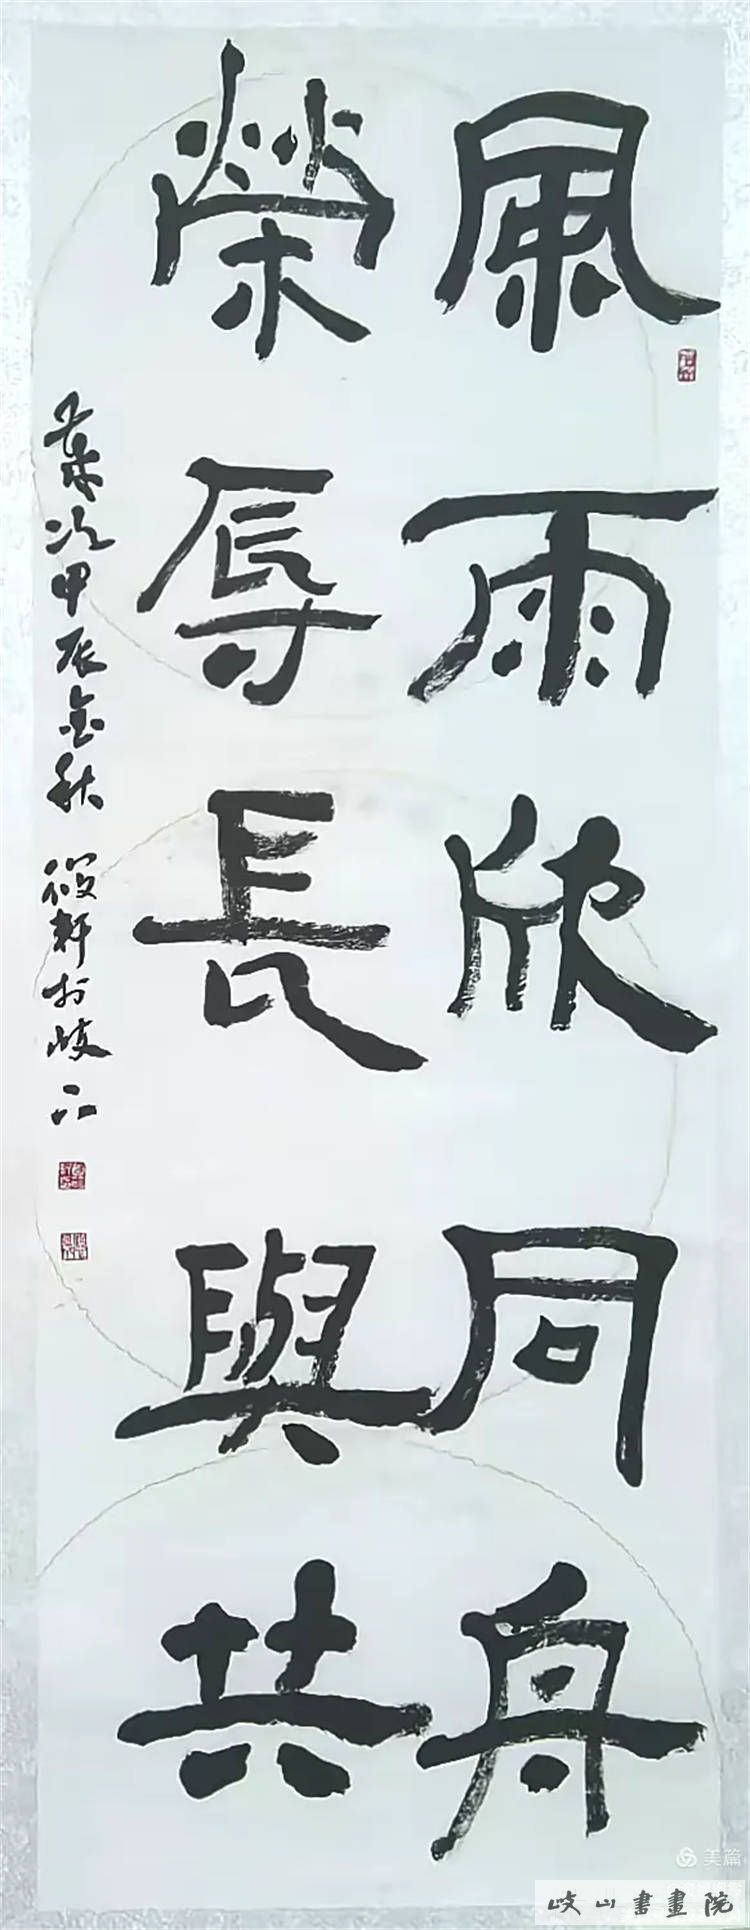 風雨欣同舟
榮辱長與共
歲次甲辰金秋 軒於岐下
美篇
岐山書畫院